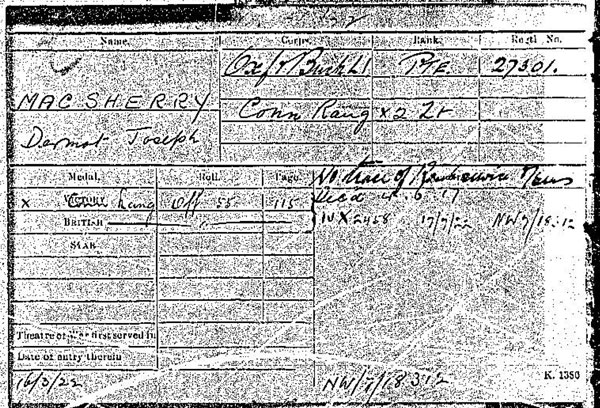 Name. Corps. Rank. Regtl. No.
Oxf & Bucks LI PTE. 27301.
MACSHERRY Conn Rang x 2 Lt
Dermot Joseph
Medal. Roll. Page. No trace of
x VICTORY Off 55 115 Decd 4.6.17
BRITISH IV X 2458 17/7/22 NW7/18312
STAR
Theatre of War first served in
Date of entry therein
16/3/22 NW/7/18312 K. 1380